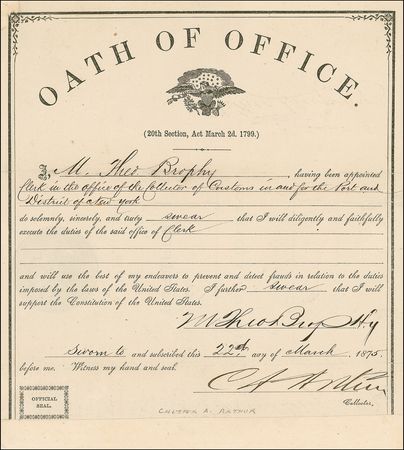 OATH OF OFFICE.
(20th Section, Act March 2d. 1799.)
I, M. Theo Brophy, having been appointed
Clerk in the office of the Collector of Customs in and for the Port and
District of New York
do solemnly, sincerely, and truly swear that I will diligently and faithfully
execute the duties of the said office of Clerk
and will use the best of my endeavors to prevent and detect frauds in relation to the duties
imposed by the laws of the United States. I further swear that I will
support the Constitution of the United States.
M Theo Brophy
Sworn to and subscribed this 22nd day of March, 1875,
before me. Witness my hand and seal.
C A Arthur
Collector.
OFFICIAL
SEAL.
CHESTER A. ARTHUR